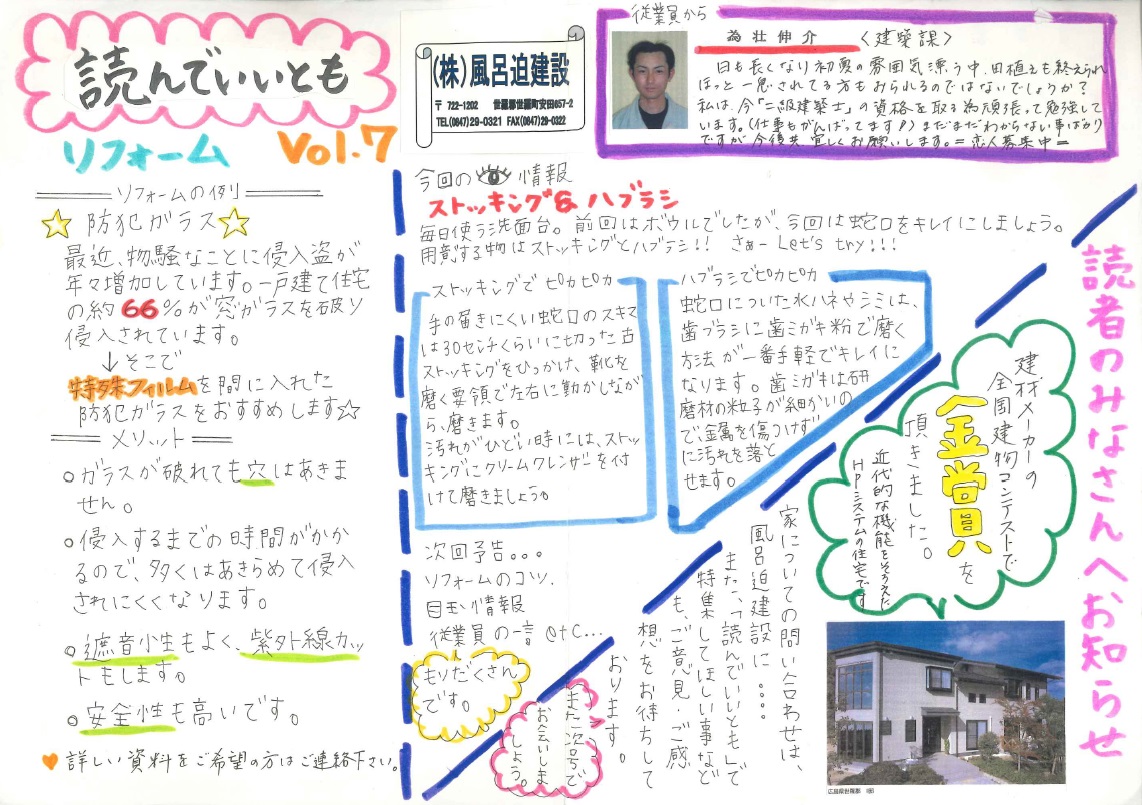 読んでいいとも
リフォーム Vol.7
(株)風呂迫建設
〒722-1202 世羅郡世羅町安田657-2
TEL(0847)29-0321 FAX(0847)29-0322
従業員から
為壮伸介 〈建築課〉
日も長くなり初夏の雰囲気漂う中、田植えも終えられ
ほっと一息されてる方もおられるのではないでしょうか?
私は、今「二級建築士」の資格を取る為頑張って勉強して
います。(仕事もがんばってます!)まだまだわからない事ばかり
ですが今後共宜しくお願いします。=恋人募集中=
リフォームの例り
☆防犯ガラス☆
最近、物騒なことに侵入盗が
年々増加しています。一戸建て住宅
の約66%が窓ガラスを破り
侵入されています。
↓そこで
特殊フィルムを間に入れた
防犯ガラスをおすすめします☆
メリット
○ガラスが破れても穴はあきま
せん。
○侵入するまでの時間がかか
るので、多くはあきらめて侵入
されにくくなります。
○遮音性もよく、紫外線カッ
トもします。
○安全性も高いです。
♥詳しい資料をご希望の方はご連絡下さい。
今回の 情報
ストッキング&ハブラシ
毎日使う洗面台。前回はボウルでしたが、今回は蛇口をキレイにしましょう。
用意する物はストッキングとハブラシ!! さぁー Let's try!!!
ストッキングでピカピカ
手の届きにくい蛇口のスキマ
は30センチくらいに切った古
ストッキングをひっかけ、靴を
磨く要領で左右に動かしなが
ら、磨きます。
汚れがひどい時には、ストッ
キングにクリームクレンザーを付
けて磨きましょう。
ハブラシでピカピカ
蛇口についた水ハネやシミは、
歯ブラシに歯ミガキ粉で磨く
方法が一番手軽でキレイに
なります。歯ミガキは研
磨材の粒子が細かいの
で、金属を傷つけず
に汚れを落と
せます。
次回予告。。。
リフォームのコツ.
目玉情報
従業員の一言 etc...
もりだくさん
です。
また次号で
お会いしま
しょう。
読者のみなさんへお知らせ
建材メーカーの
全国建物コンテストで
金賞を
頂きました。
近代的な機能をそなえた
HPシステムの住宅です
家についての問い合わせは、
風呂迫建設に....
また、「読んでいいとも」で
特集してほしい事など
も、ご意見・ご感
想をお待ちして
おります。
広島県世羅郡 I邸